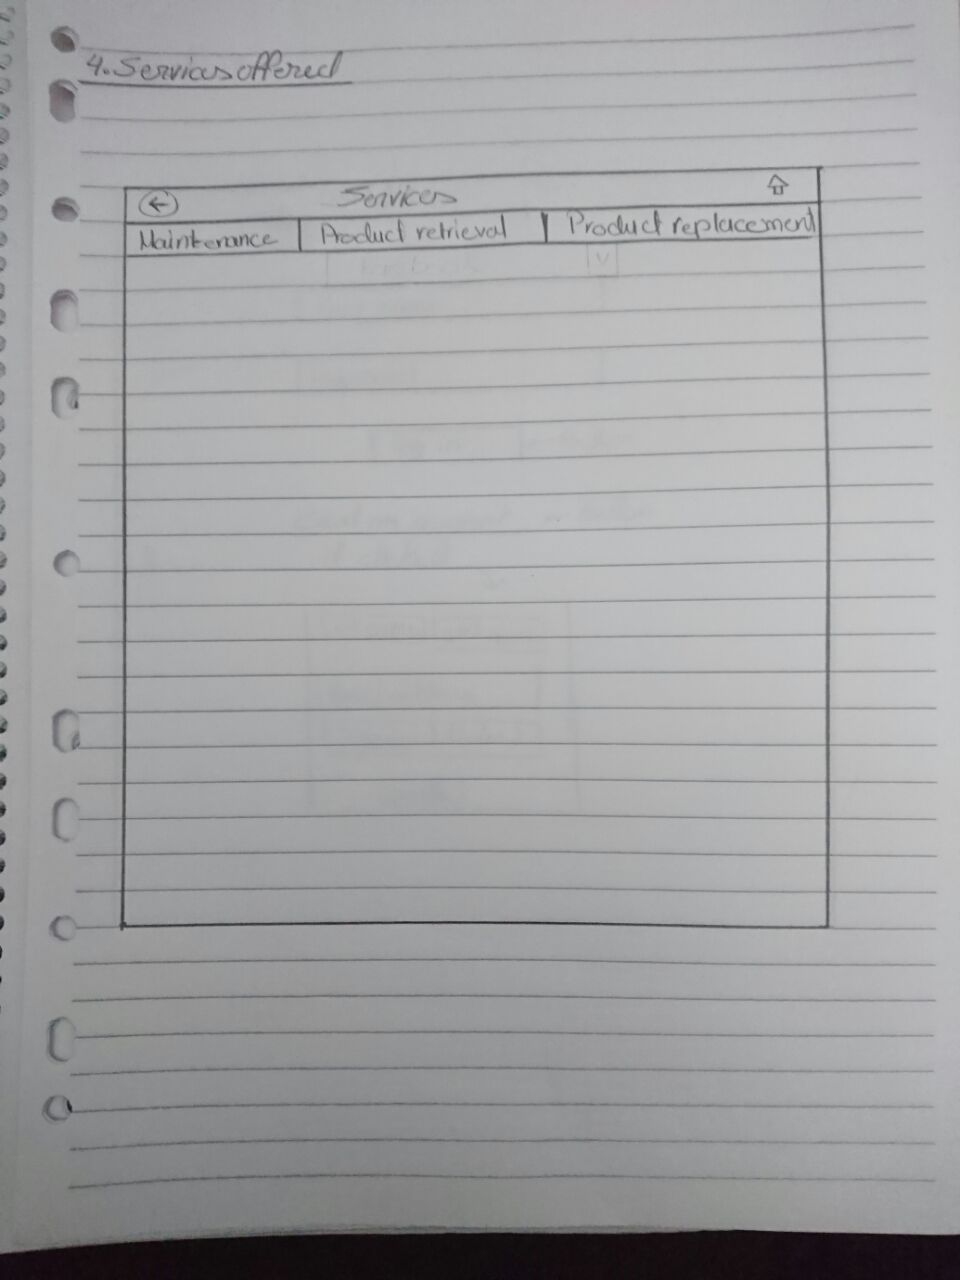 4. Services offered
Services
Maintenance Product retrieval Product replacement